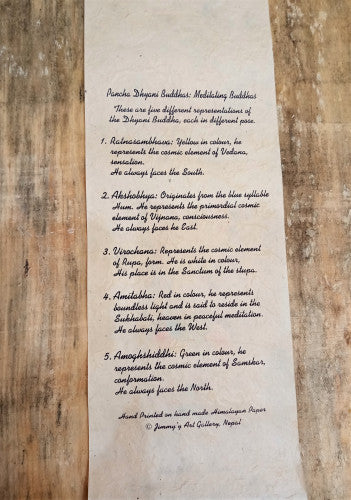 Pancha Dhyani Buddhas: Meditating Buddhas
These are five different representations of
the Dhyani Buddha, each in different pose.
1. Ratnasambhava: Yellow in colour, he
represents the cosmic element of Vedana,
sensation.
He always faces the South.
2. Akshobhya: Originates from the blue syllable
Hum. He represents the primordial cosmic
element of Vijnana, consciousness.
He always faces he East.
3. Virochana: Represents the cosmic element
of Rupa, form. He is white in colour,
His place is in the Sanctum of the stupa.
4. Amitabha: Red in colour, he represents
boundless light and is said to reside in the
Sukhabati, heaven in peaceful meditation.
He always faces the West.
5. Amoghshiddhi: Green in colour, he
represents the cosmic element of Samskar,
conformation.
He always faces the North.
Hand Printed on hand made Himalayan Paper
© Jimmy's Art Gallery, Nepal